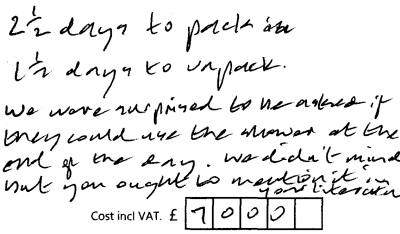 2½ days to pack
1½ days to unpack.
We were surprised to be asked if
they could use the shower at the
end of the day. We didn't mind
but you ought to mention it in
your literature
Cost incl VAT. £ 7000